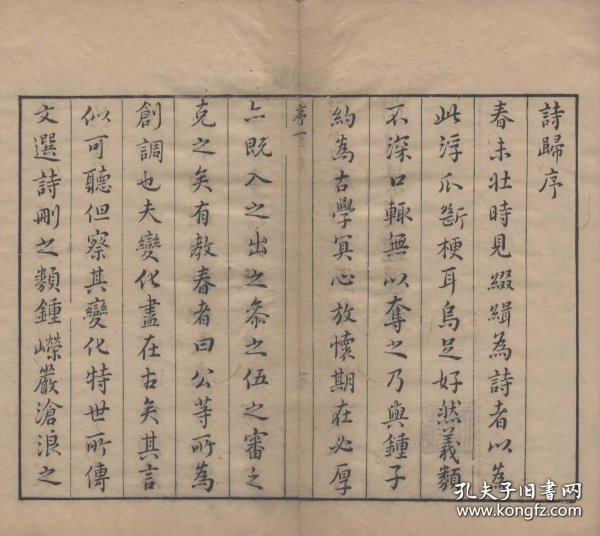 詩歸序
春未壯時見綴緝為詩者以為
此浮爪斷梗耳烏足好然義類
不深口輒無以奪之乃與鍾子
約為古學冥心放懷期在必厚
序一
亦既入之出之叅之伍之審之
克之矣有教春者曰公等所為
創調也夫變化盡在古矣其言
似可聽但察其變化特世所傳
文選詩刪之類鍾嶸嚴滄浪之
孔夫子旧書网
www.kongfz.com